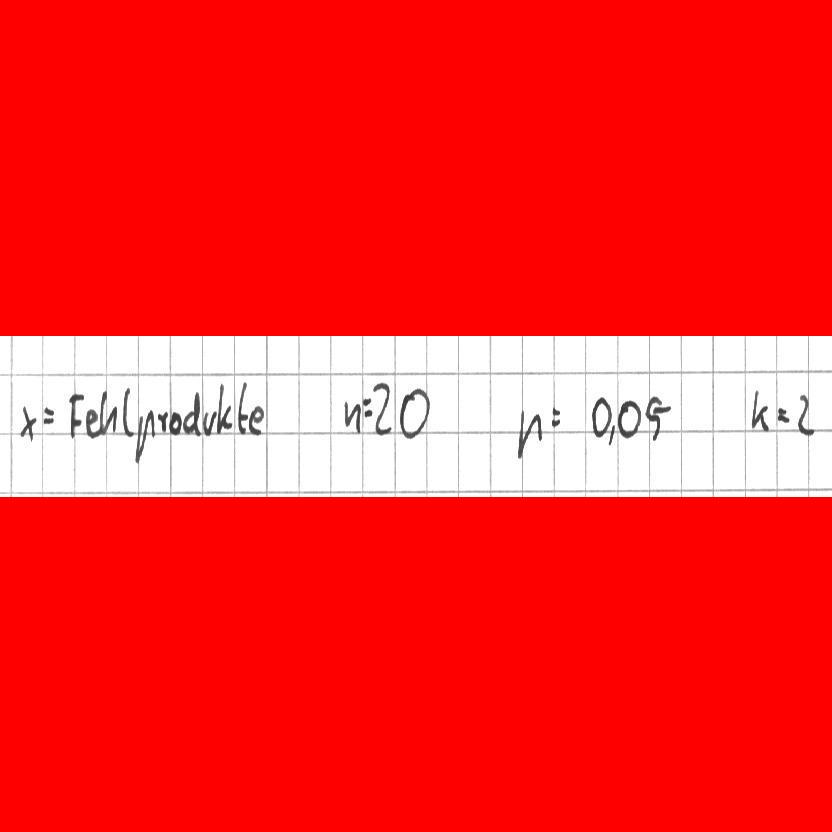 x = Fehlprodukte n=20 p = 0,05 k=2